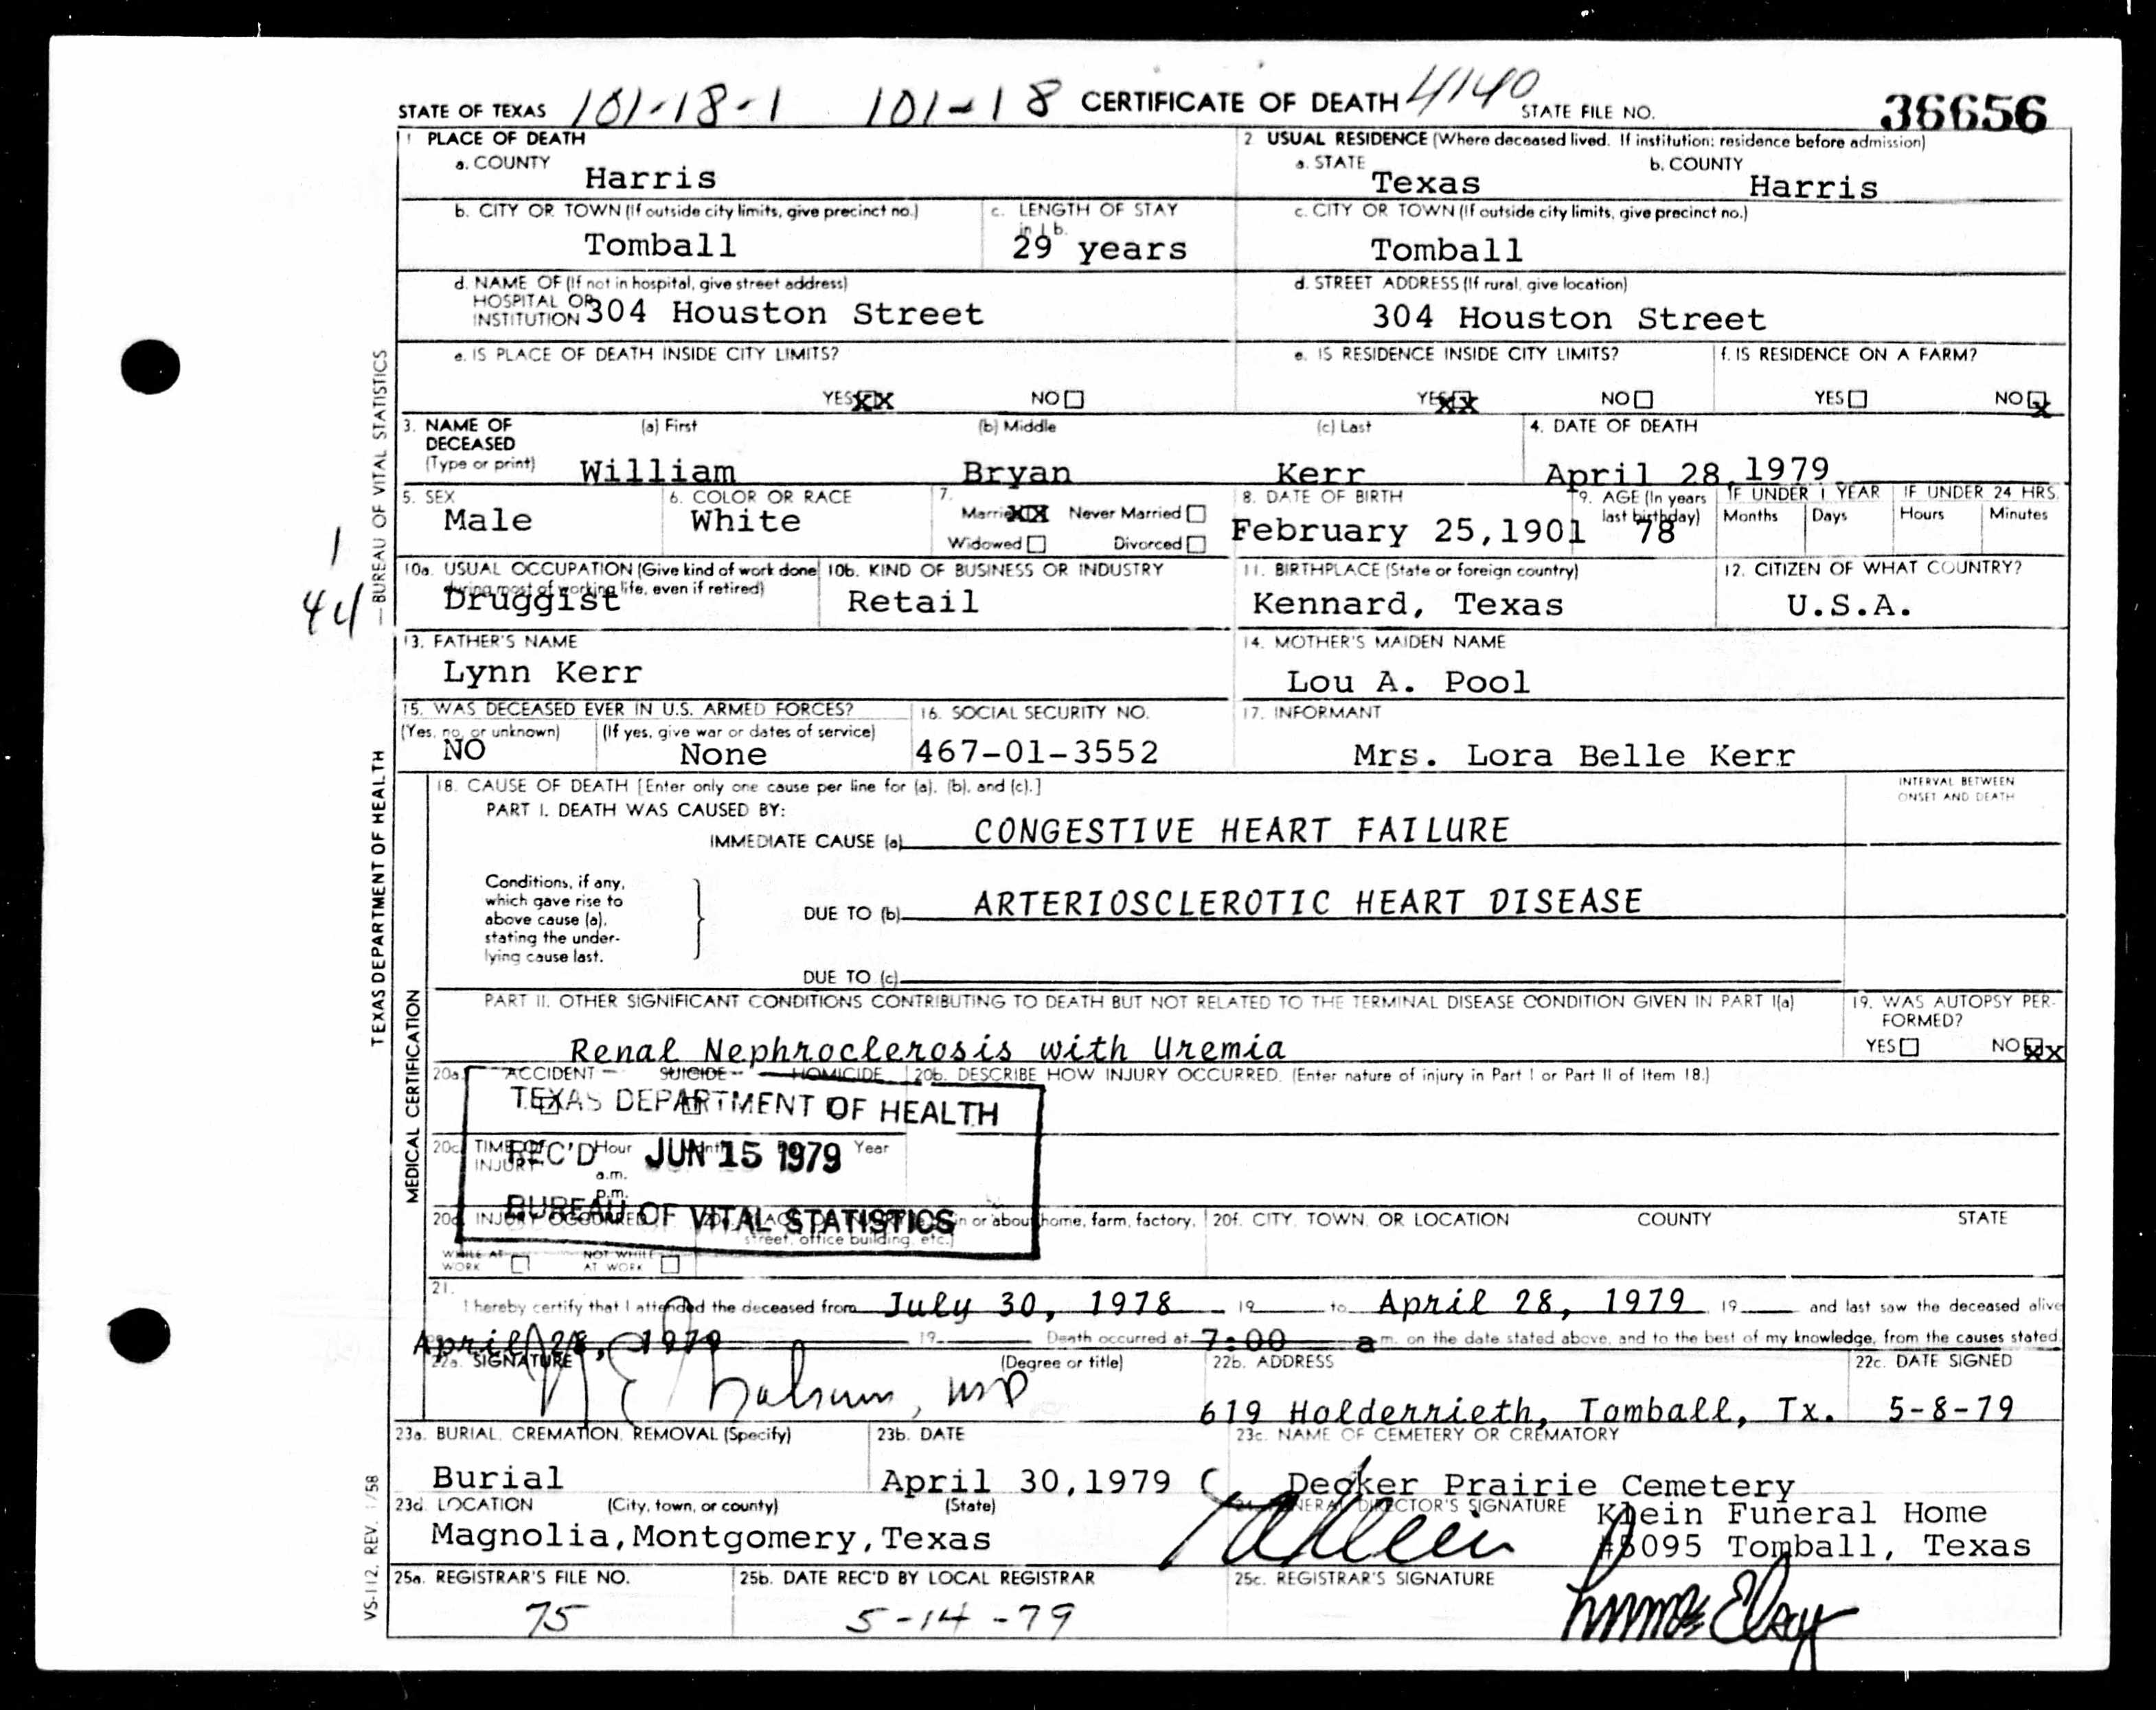 STATE OF TEXAS 101-18-1 101-18 CERTIFICATE OF DEATH 4140 STATE FILE NO. 36656
1 PLACE OF DEATH
a. COUNTY
Harris
2 USUAL RESIDENCE (Where deceased lived. If institution: residence before admission)
a. STATE
Texas
b. COUNTY
Harris
b. CITY OR TOWN (If outside city limits, give precinct no.)
Tomball
c. LENGTH OF STAY
in 1 b.
29 years
c. CITY OR TOWN (If outside city limits, give precinct no.)
Tomball
d. NAME OF (If not in hospital, give street address)
HOSPITAL OR
INSTITUTION 304 Houston Street
d. STREET ADDRESS (If rural, give location)
304 Houston Street
e. IS PLACE OF DEATH INSIDE CITY LIMITS?
YES XX NO
e. IS RESIDENCE INSIDE CITY LIMITS?
YES XX NO
f. IS RESIDENCE ON A FARM?
YES NO X
3. NAME OF
DECEASED
(Type or print)
(a) First
William
(b) Middle
Bryan
(c) Last
Kerr
4. DATE OF DEATH
April 28,1979
5. SEX
Male
6. COLOR OR RACE
White
7.
Married XX Never Married
Widowed Divorced
8. DATE OF BIRTH
February 25,1901
9. AGE (In years
last birthday)
78
IF UNDER 1 YEAR
Months Days
IF UNDER 24 HRS.
Hours Minutes
10a. USUAL OCCUPATION (Give kind of work done
during most of working life, even if retired)
Druggist
10b. KIND OF BUSINESS OR INDUSTRY
Retail
11. BIRTHPLACE (State or foreign country)
Kennard, Texas
12. CITIZEN OF WHAT COUNTRY?
U.S.A.
13. FATHER'S NAME
Lynn Kerr
14. MOTHER'S MAIDEN NAME
Lou A. Pool
15. WAS DECEASED EVER IN U.S. ARMED FORCES?
(Yes, no, or unknown) (If yes, give war or dates of service)
NO None
16. SOCIAL SECURITY NO.
467-01-3552
17. INFORMANT
Mrs. Lora Belle Kerr
18. CAUSE OF DEATH [Enter only one cause per line for (a), (b), and (c).]
INTERVAL BETWEEN
ONSET AND DEATH
PART I. DEATH WAS CAUSED BY:
IMMEDIATE CAUSE (a) CONGESTIVE HEART FAILURE
Conditions, if any,
which gave rise to
above cause (a),
stating the under-
lying cause last.
DUE TO (b) ARTERIOSCLEROTIC HEART DISEASE
DUE TO (c)
PART II. OTHER SIGNIFICANT CONDITIONS CONTRIBUTING TO DEATH BUT NOT RELATED TO THE TERMINAL DISEASE CONDITION GIVEN IN PART I(a)
Renal Nephroclerosis with Uremia
19. WAS AUTOPSY PER-
FORMED?
YES NO XX
20a. ACCIDENT SUICIDE HOMICIDE
20b. DESCRIBE HOW INJURY OCCURRED. (Enter nature of injury in Part I or Part II of Item 18.)
TEXAS DEPARTMENT OF HEALTH
REC'D JUN 15 1979
BUREAU OF VITAL STATISTICS
20c. TIME OF
INJURY
Hour
a.m.
p.m.
Year
20d. INJURY OCCURRED
WHILE AT
WORK
NOT WHILE
AT WORK
in or about home, farm, factory,
street, office building, etc.)
20f. CITY, TOWN, OR LOCATION COUNTY STATE
21.
I hereby certify that I attended the deceased from July 30, 1978 19 to April 28, 1979 19 and last saw the deceased alive
April 28, 1979 19 Death occurred at 7:00 a m. on the date stated above, and to the best of my knowledge, from the causes stated.
22a. SIGNATURE
(Degree or title)
MD
22b. ADDRESS
619 Holderrieth, Tomball, Tx.
22c. DATE SIGNED
5-8-79
23a. BURIAL, CREMATION, REMOVAL (Specify)
Burial
23b. DATE
April 30,1979
23c. NAME OF CEMETERY OR CREMATORY
Decker Prairie Cemetery
23d. LOCATION (City, town, or county) (State)
Magnolia,Montgomery,Texas
24. FUNERAL DIRECTOR'S SIGNATURE
Klein Funeral Home
#5095 Tomball, Texas
25a. REGISTRAR'S FILE NO.
75
25b. DATE REC'D BY LOCAL REGISTRAR
5-14-79
25c. REGISTRAR'S SIGNATURE
TEXAS DEPARTMENT OF HEALTH — BUREAU OF VITAL STATISTICS
MEDICAL CERTIFICATION
VS-112, REV. 1/58
1
44